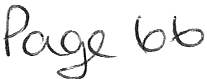 Page 66